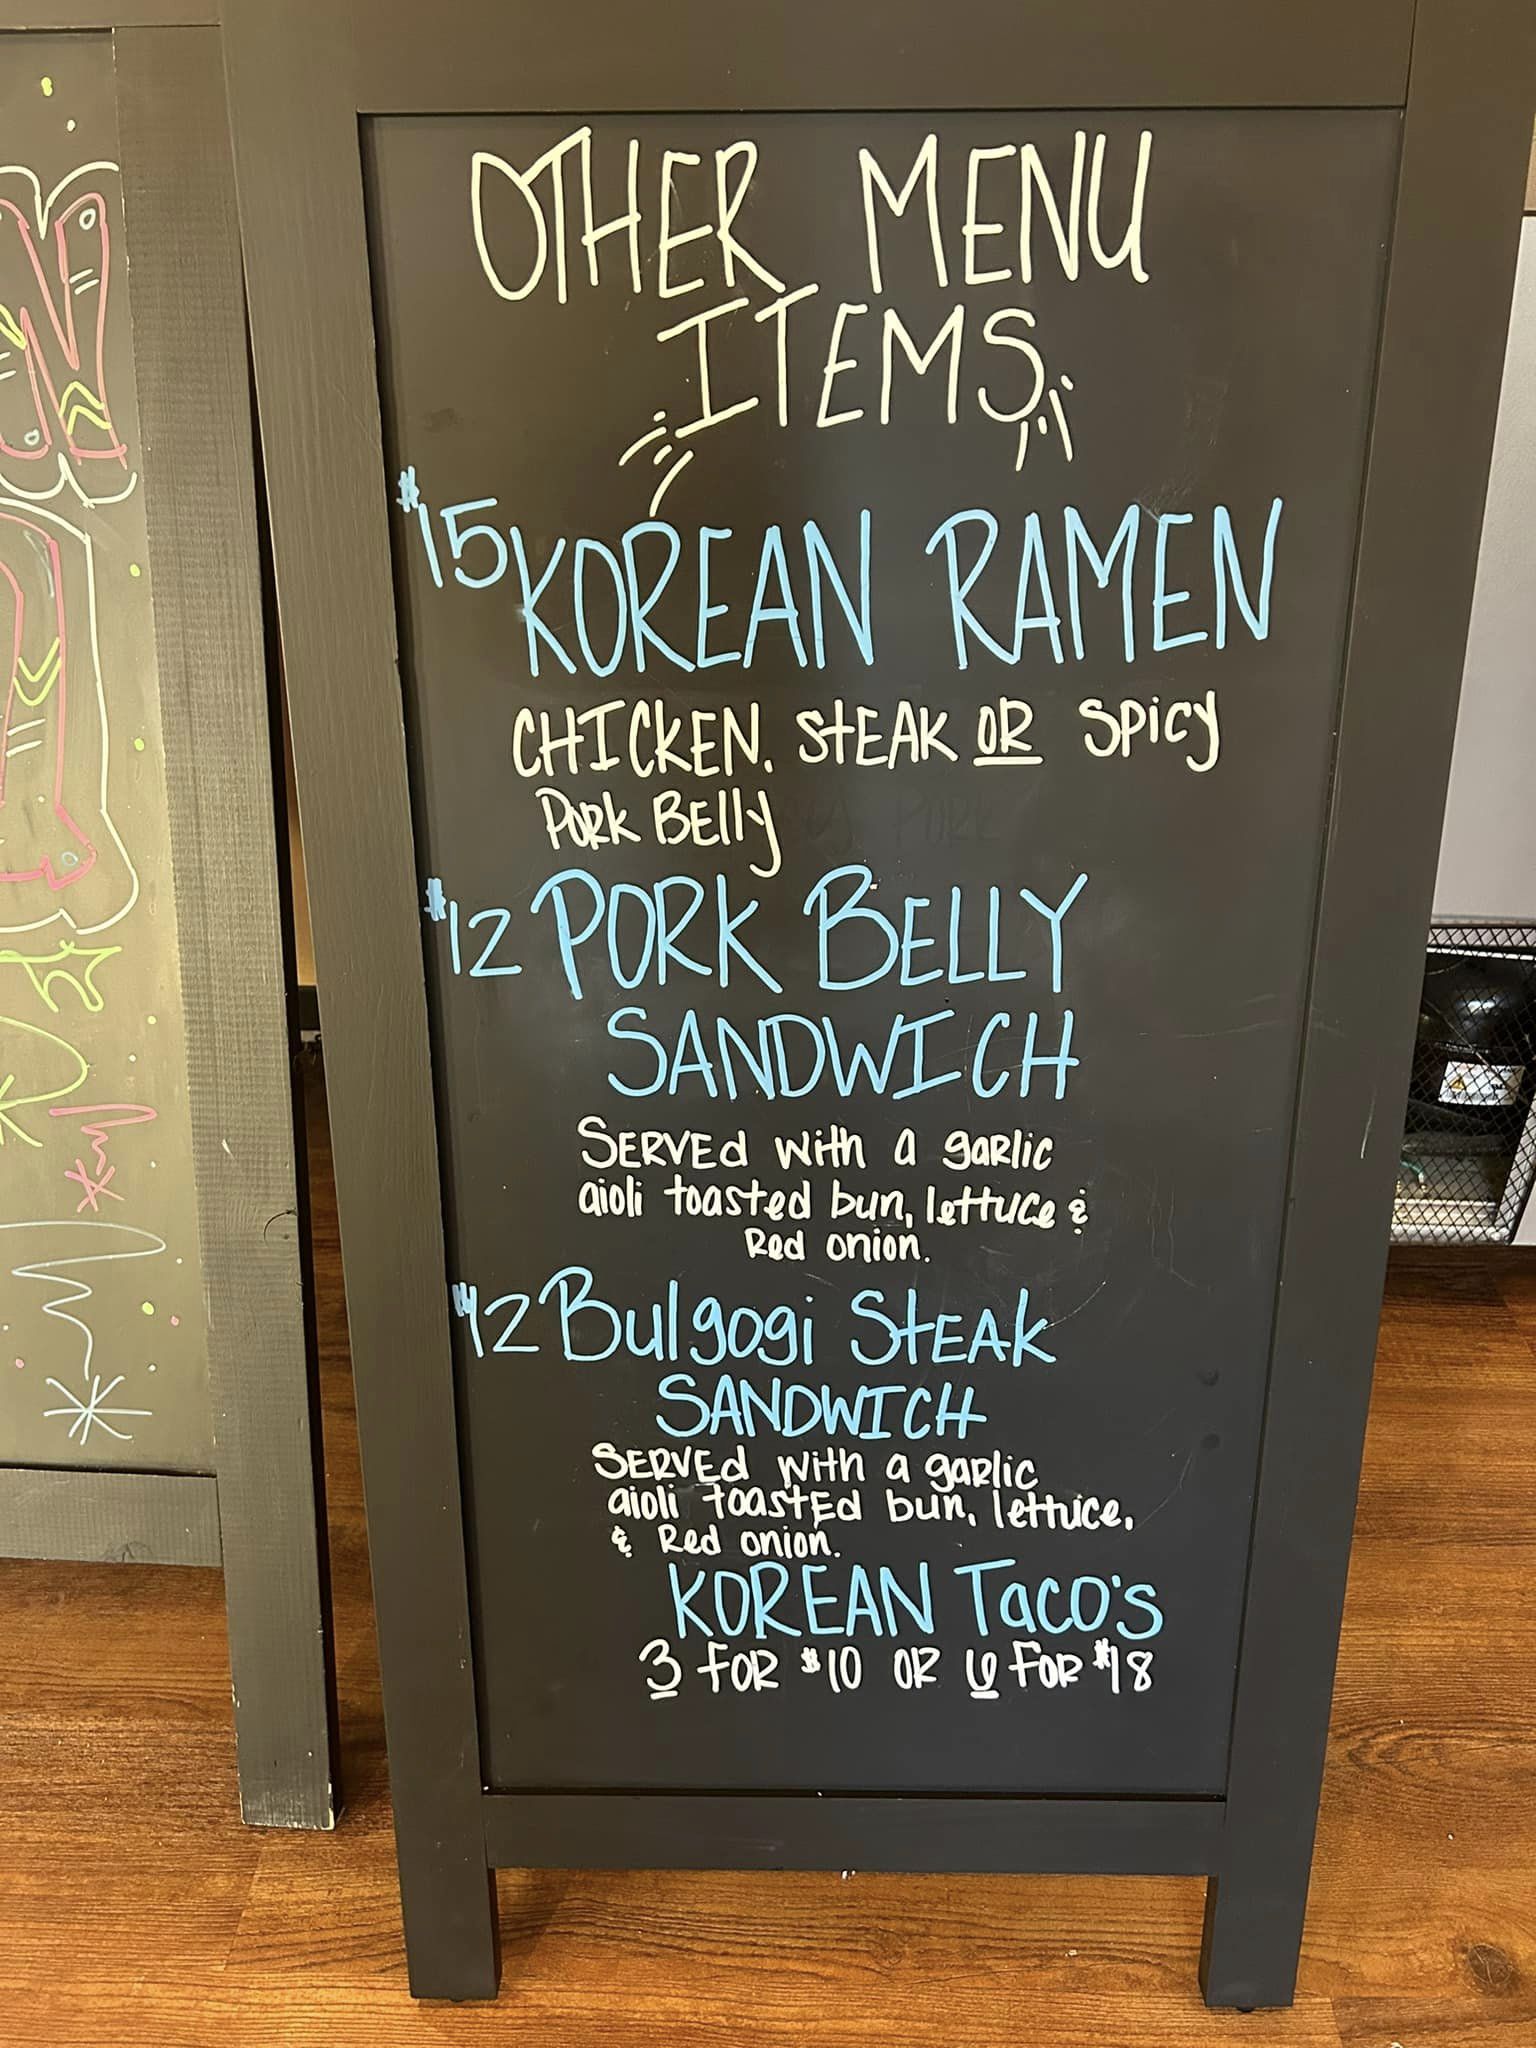 OTHER MENU
ITEMS
$15 KOREAN RAMEN
CHICKEN, StEAK OR SPicy
PORK BElly
$12 PORK BELLY
SANDWICH
SERVEd with a garlic
aioli toasted bun, lettuce &
Red onion.
$12 Bulgogi StEAK
SANDWICH
SERVEd with a garlic
aioli toastEd bun, lettuce,
& Red onion.
KOREAN Taco's
3 FOR $10 OR 6 FOR $18